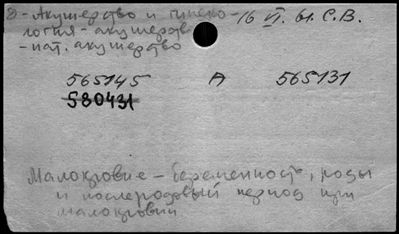 Э - Акушерство и гинеко- 16 VI. 61. С.В.
логия - акушерство
- пат. акушерство
565145 А 565131
580431
Малокровие - беременность, роды
и послеродовый период при
малокровии